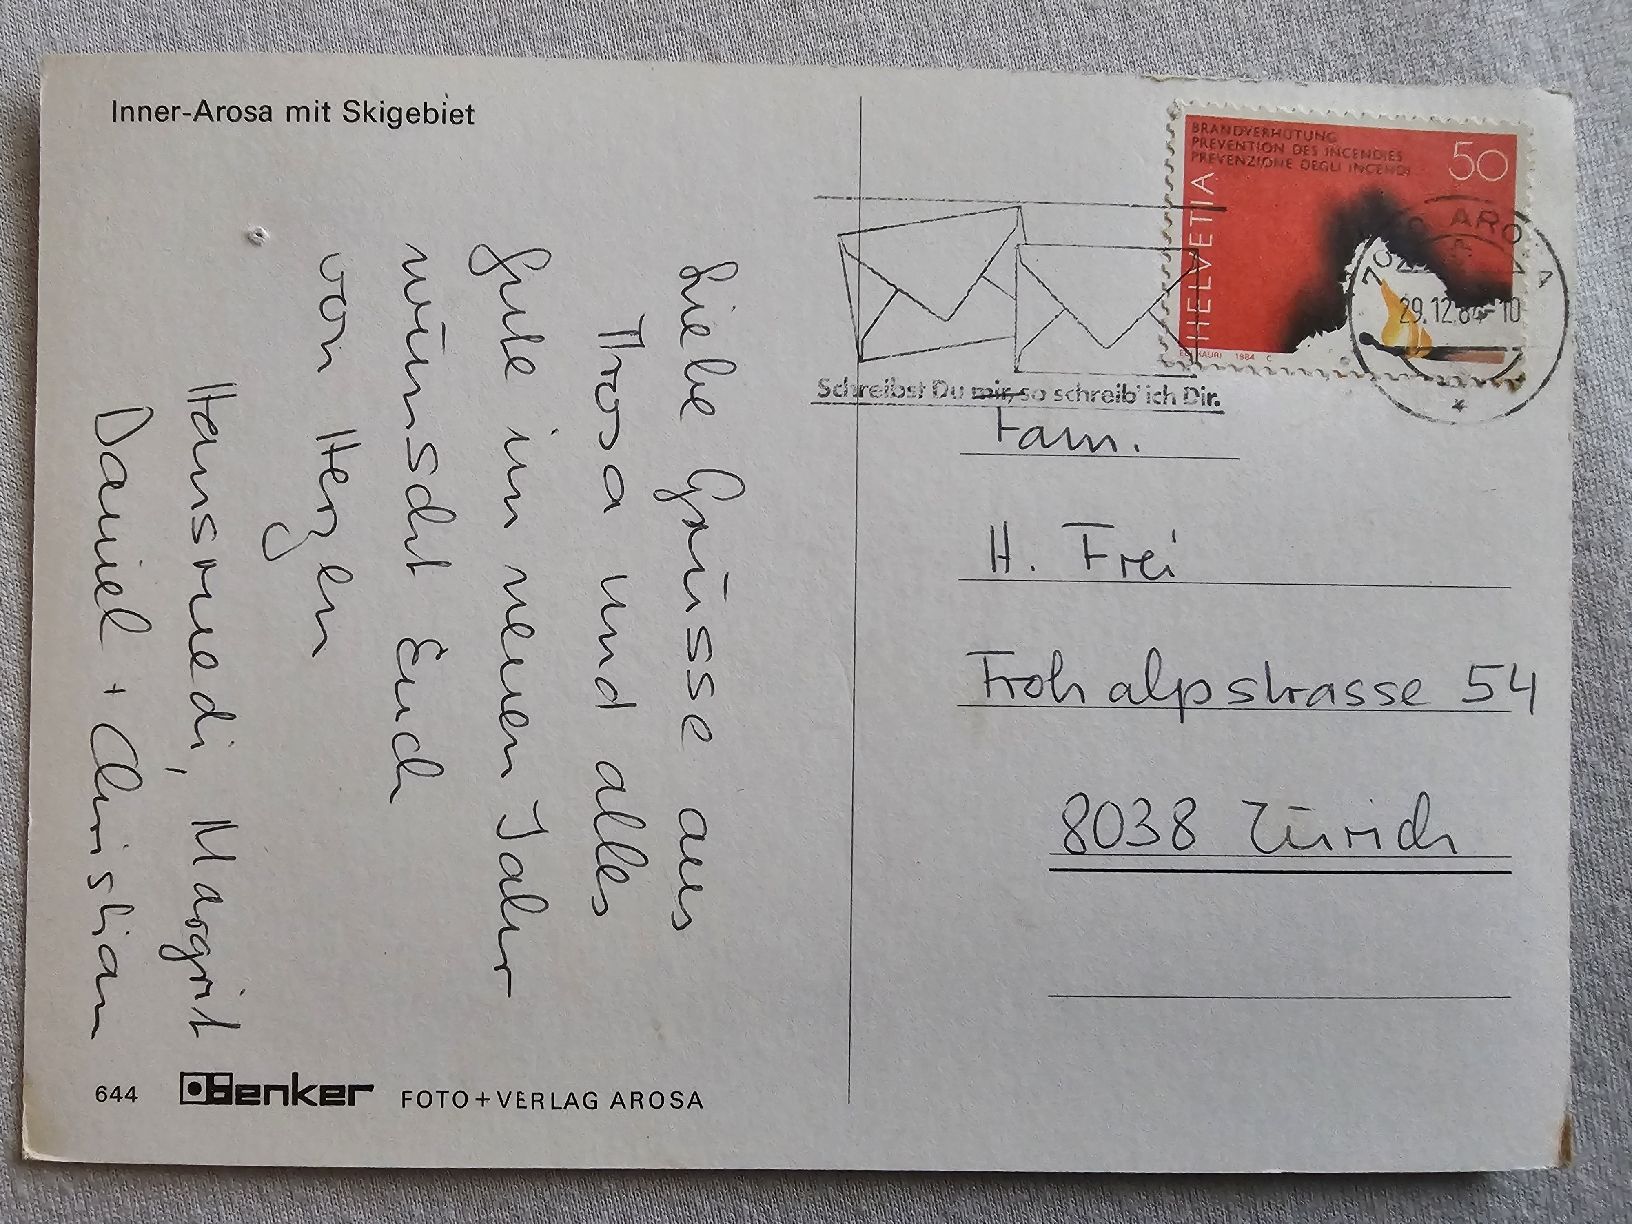 Inner-Arosa mit Skigebiet
Liebe Grüsse aus
Arosa und alles
Gute im neuen Jahr
wünscht Euch
von Herzen
Hansruedi, Margrit
Daniel + Christian
644 Benker FOTO+VERLAG AROSA
BRANDVERHÜTUNG
PREVENTION DES INCENDIES
PREVENZIONE DEGLI INCENDI
50
HELVETIA
1984
AROSA
29.12.84-10
Schreibst Du mir, so schreib' ich Dir.
Fam.
H. Frei
Frohalpstrasse 54
8038 Zürich